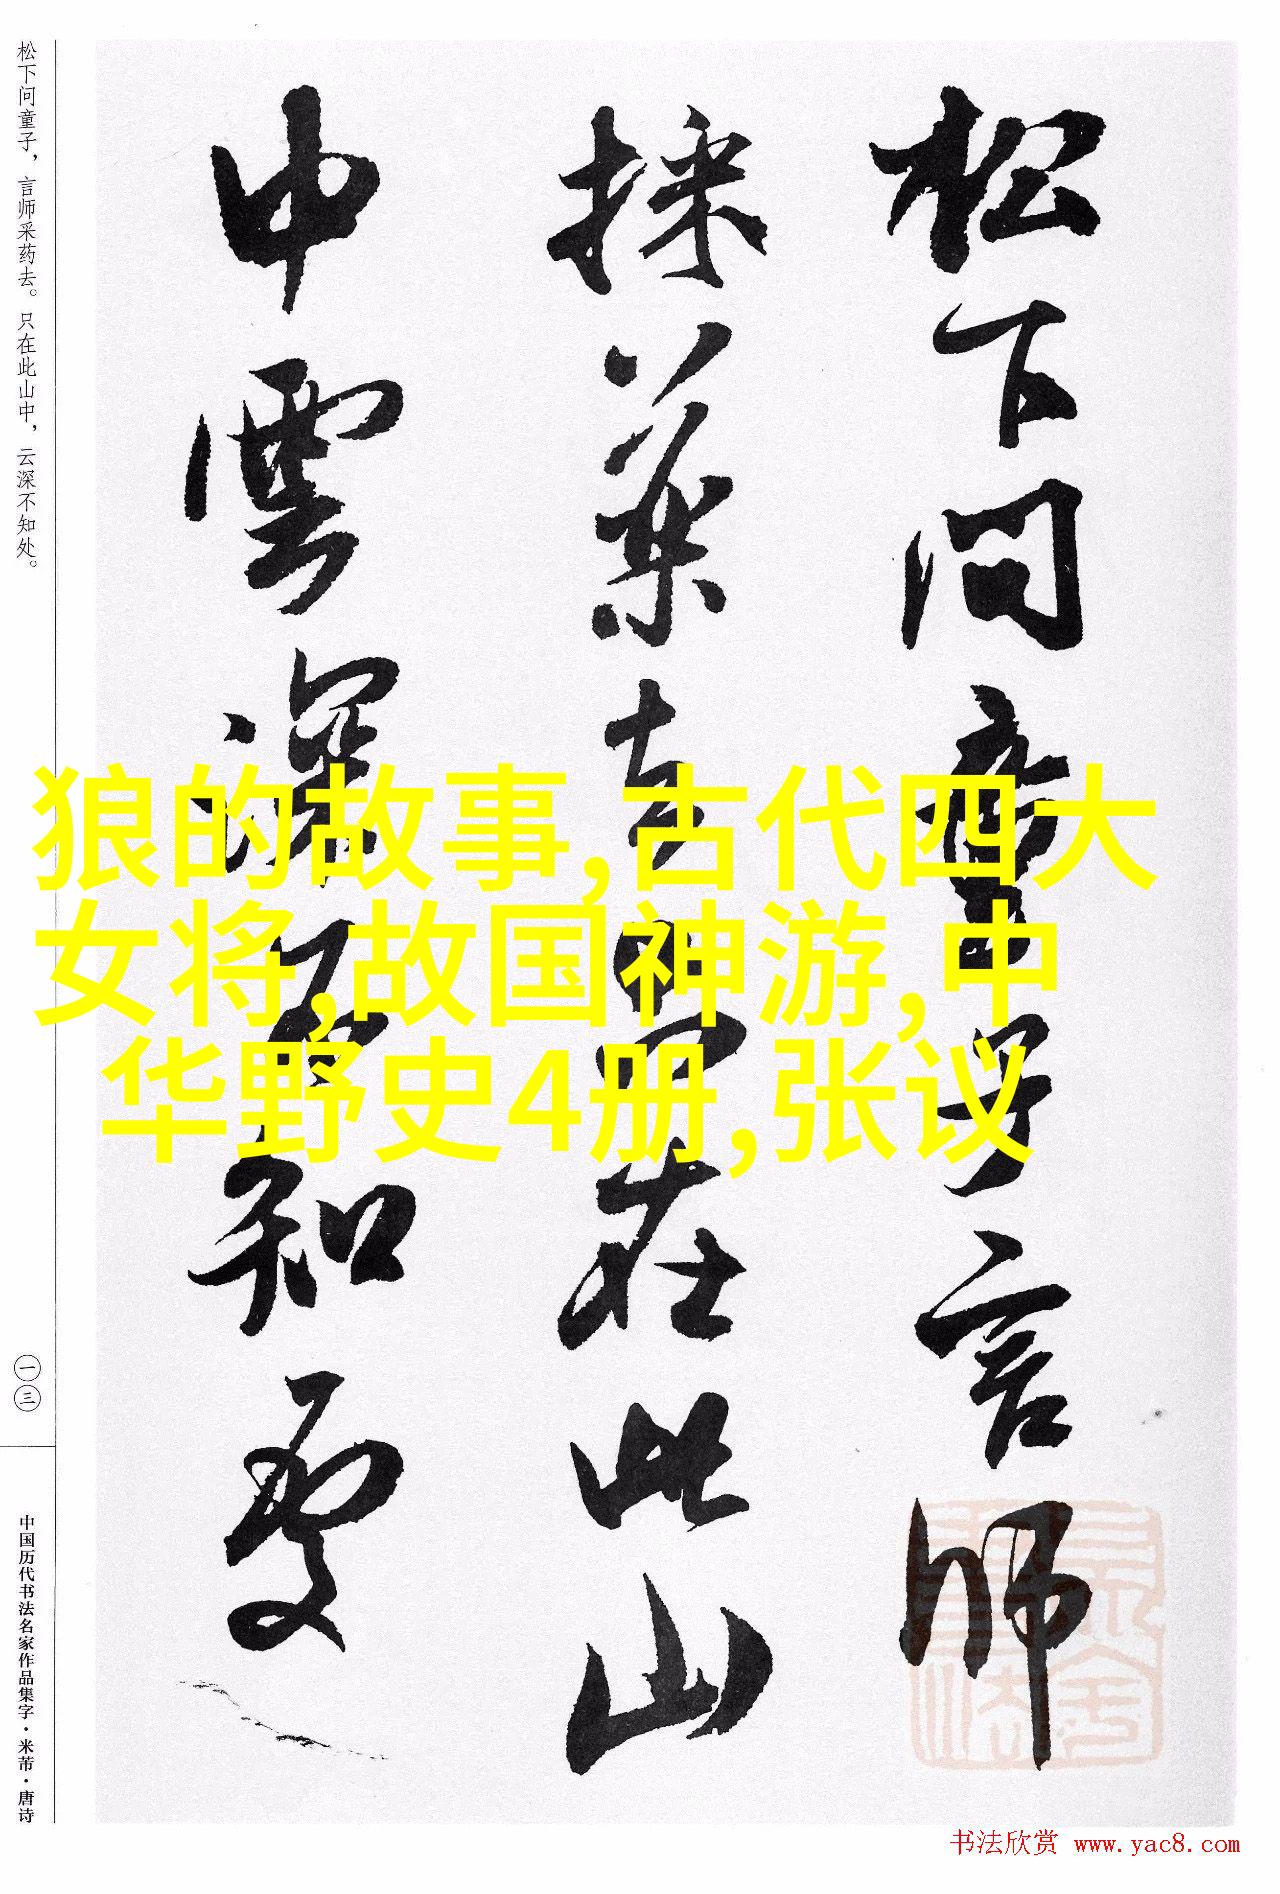 松下问童子，言师采药去。只在此山中，云深不知处。
一三
中国历代书法名家作品集字·米芾·唐诗
松下问童子言师
採药去只在此山
中雲深不知處
狼的故事,古代四大
女将,故国神游,中
华野史4册,张议
书法欣赏 www.yac8.com